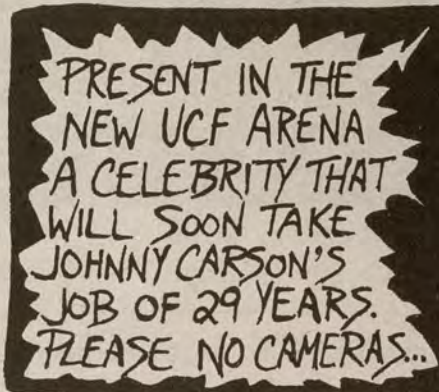 PRESENT IN THE
NEW UCF ARENA
A CELEBRITY THAT
WILL SOON TAKE
JOHNNY CARSON'S
JOB OF 29 YEARS.
PLEASE NO CAMERAS...